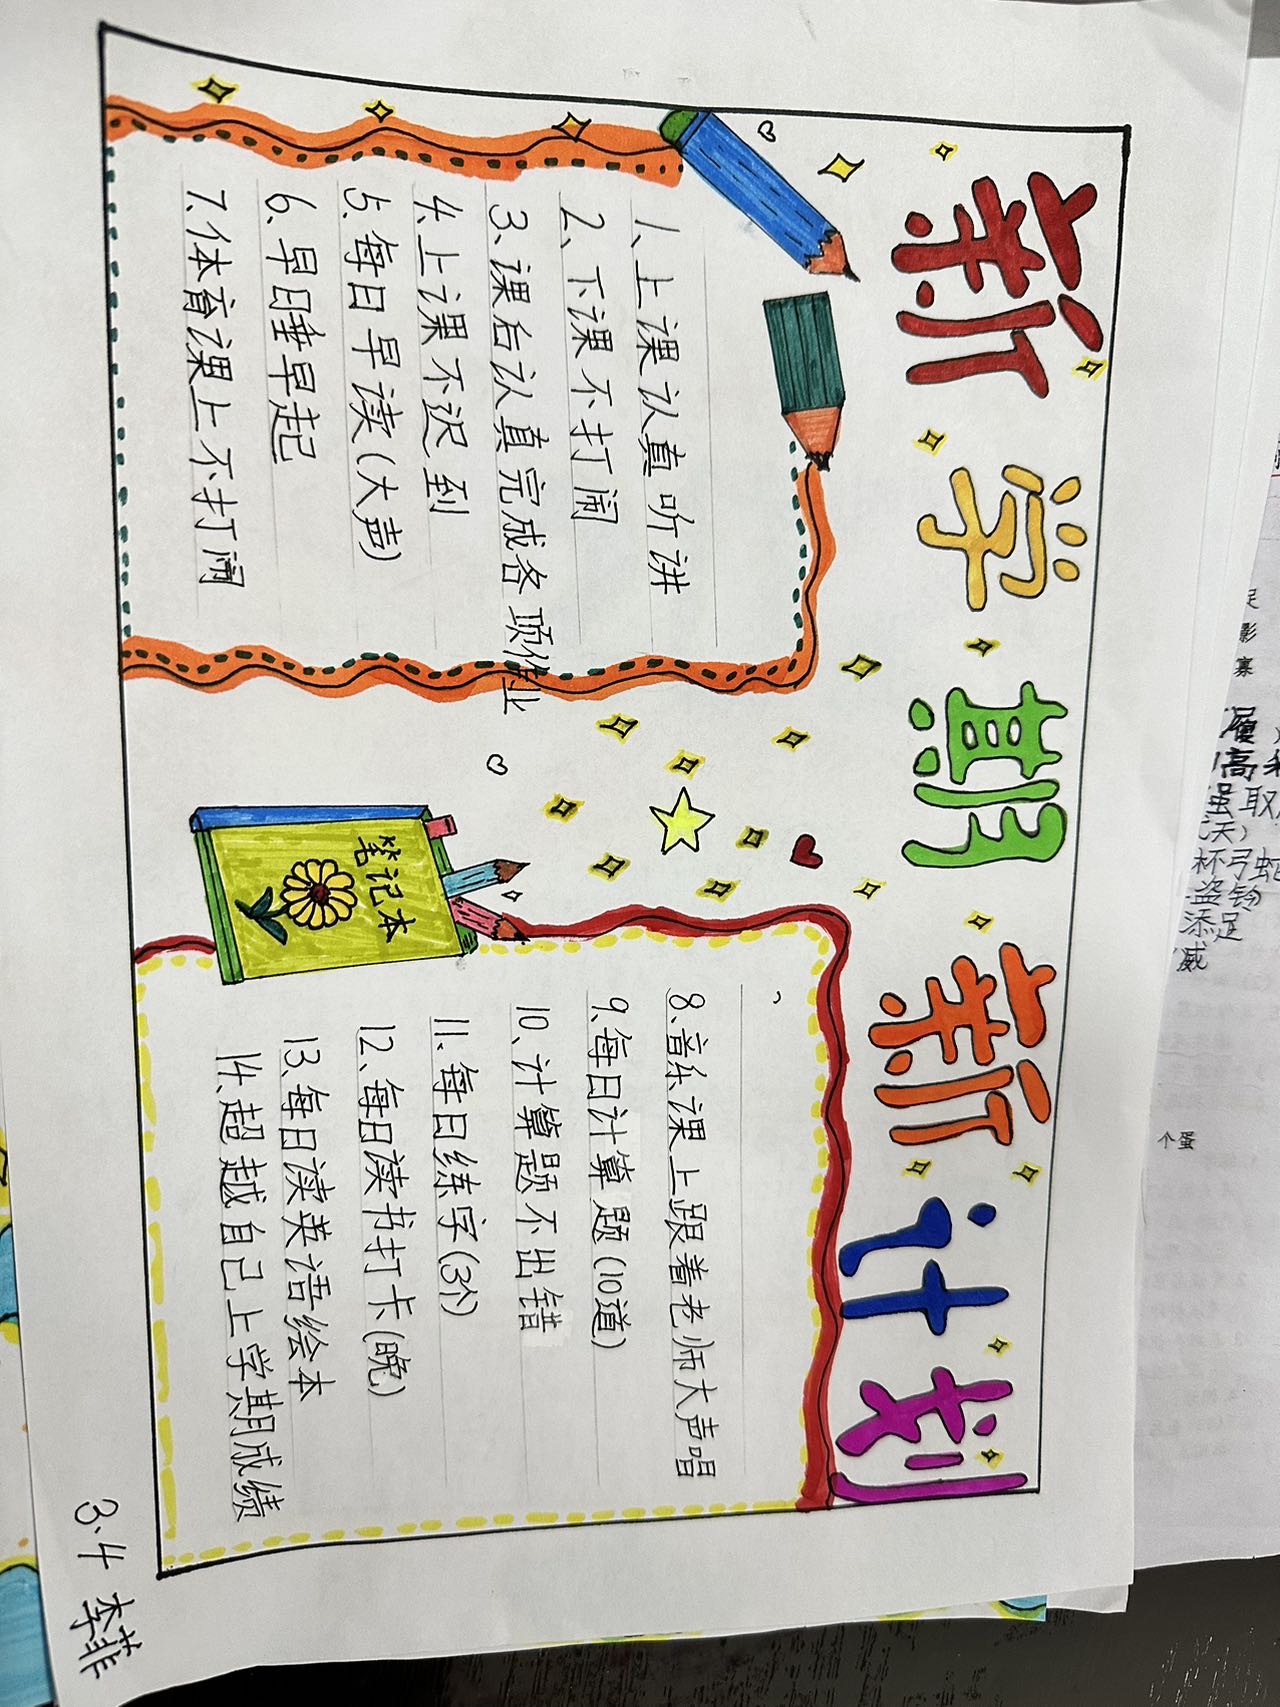 新学期新计划
1、上课认真听讲
2、下课不打闹
3、课后认真完成各项作业
4、上课不迟到
5、每日早读(大声)
6、早日睡早起
7、体育课上不打闹
笔记本
8、音乐课上跟着老师大声唱
9、每日计算题(10道)
10、计算题不出错
11、每日练字(3个)
12、每日读书打卡(晚)
13、每日读英语绘本
14、超越自己上学期成绩
3、4 李菲
足
影
寨
履
高
蛋取
天)
杯弓蛇
盗铃
添足
威
个蛋